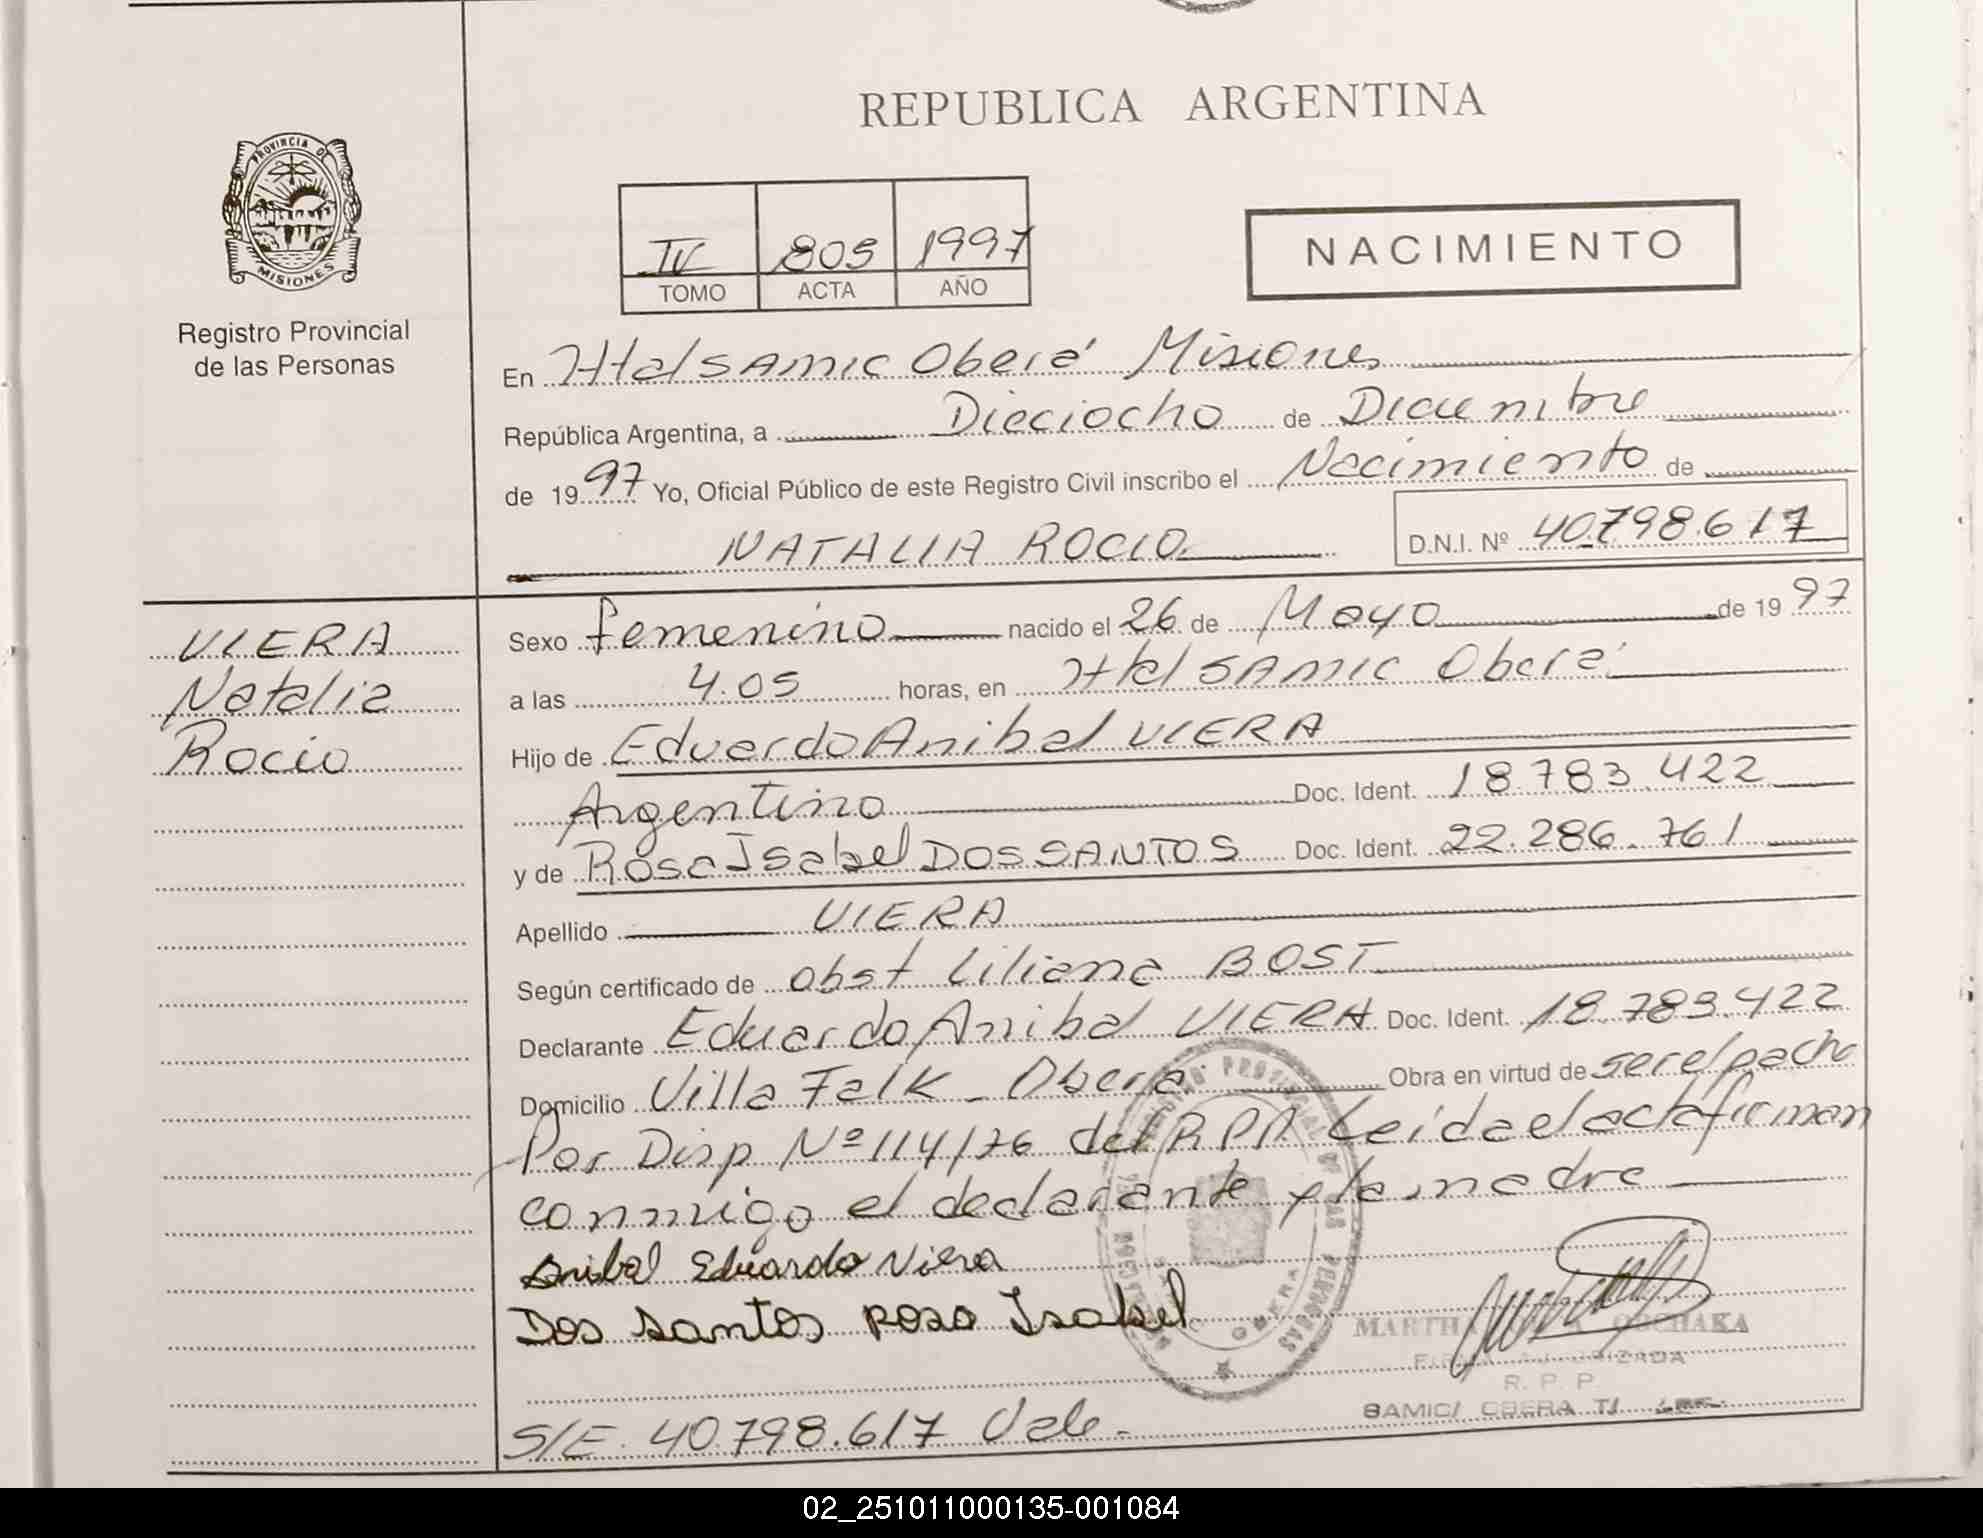 REPUBLICA ARGENTINA
PROVINCIA DE
MISIONES
Registro Provincial
de las Personas
IV 805 1997
TOMO ACTA AÑO
NACIMIENTO
En Htal SAMIC Oberá Misiones
República Argentina, a Dieciocho de Diciembre
de 1997 Yo, Oficial Público de este Registro Civil inscribo el Nacimiento de
NATALIA ROCIO D.N.I. Nº 40.798.617
VIERA
Natalia
Rocio
Sexo femenino nacido el 26 de Mayo de 1997
a las 4.05 horas, en Htal SAMIC Oberá
Hijo de Eduardo Anibal VIERA
Argentino Doc. Ident. 18.783.422
y de Rosa Isabel DOS SANTOS Doc. Ident. 22.286.761
Apellido VIERA
Según certificado de Obst Liliana BOST
Declarante Eduardo Anibal VIERA Doc. Ident. 18.783.422
Domicilio Villa Falk - Oberá Obra en virtud de ser el padre
Por Disp Nº 114/76 del RPP Leida el acta firman
conmigo el declarante y la madre
Anibal Eduardo Viera
Dos Santos Rosa Isabel
MARTHA
R. P. P.
SAMIC/ OBERA
S/E. 40.798.617 Vale.-
02_251011000135-001084